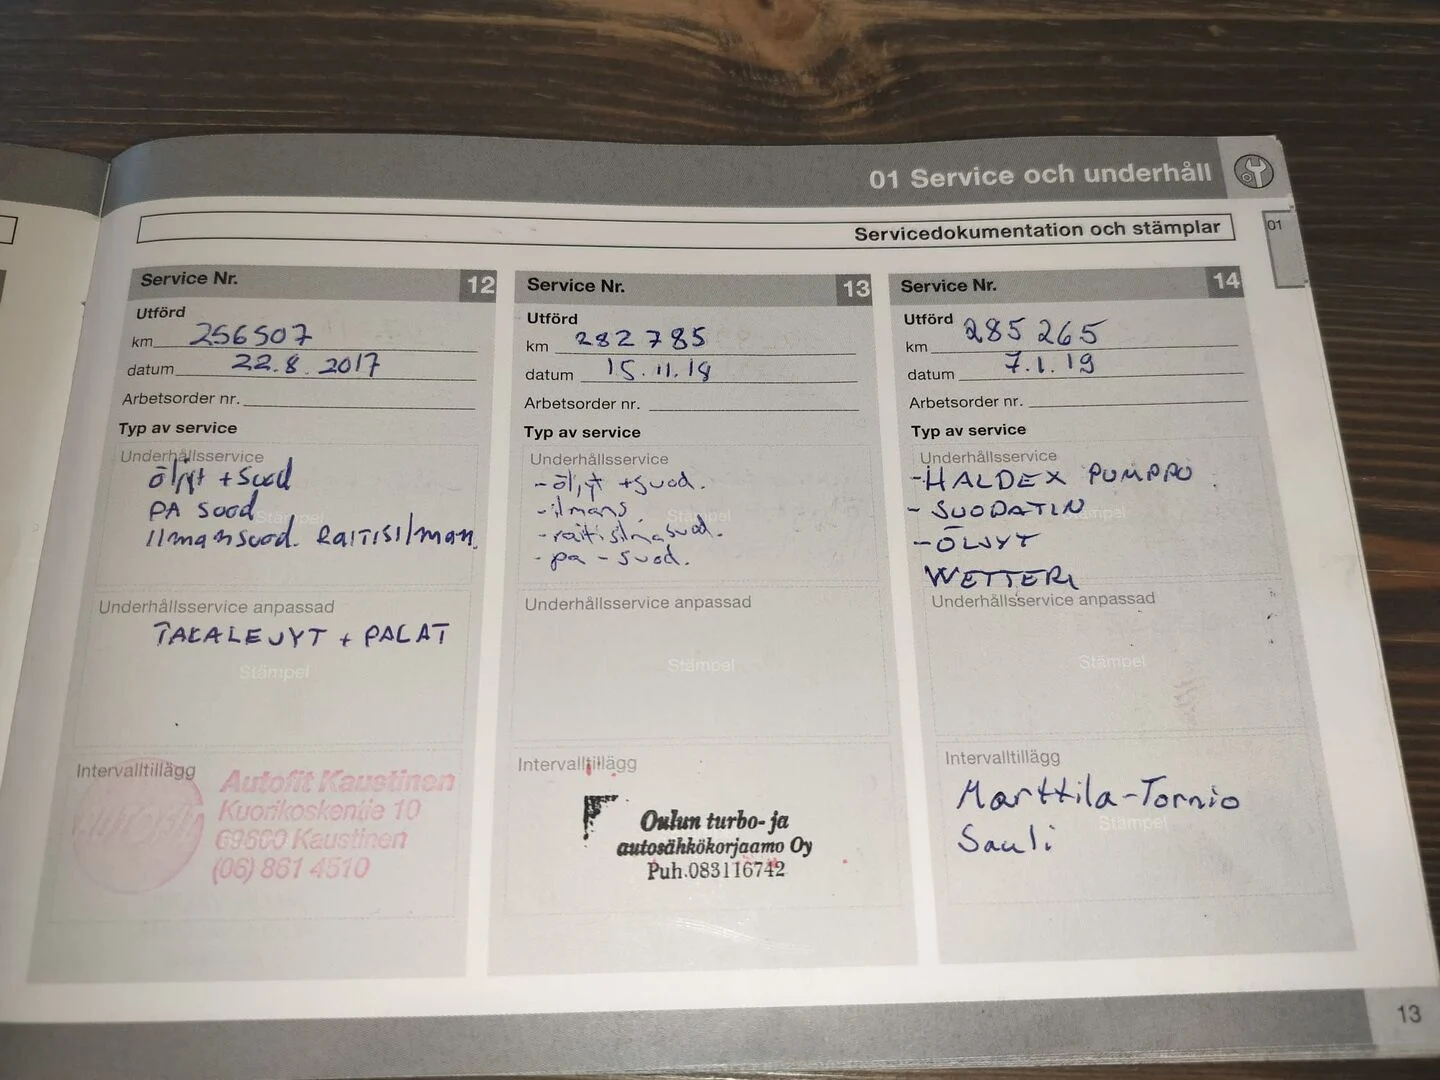 01 Service och underhåll
01
Servicedokumentation och stämplar
Service Nr. 12
Utförd
km 256507
datum 22.8.2017
Arbetsorder nr.
Typ av service
Underhållsservice
öljyt + suod
PA suod
Stämpel
Ilmansuod. RAITISIlman.
Underhållsservice anpassad
TAKALEVYT + PALAT
Stämpel
Intervalltillägg
Autofit Kaustinen
Kuorikoskentie 10
69600 Kaustinen
(06) 861 4510
Service Nr. 13
Utförd
km 282 785
datum 15.11.18
Arbetsorder nr.
Typ av service
Underhållsservice
- öljyt + suod.
- ilmans.
Stämpel
- raitisilmasuod.
- pa - suod.
Underhållsservice anpassad
Stämpel
Intervalltillägg
Oulun turbo- ja
autosähkökorjaamo Oy
Puh.083116742
Service Nr. 14
Utförd
km 285 265
datum 7.1.19
Arbetsorder nr.
Typ av service
Underhållsservice
- HALDEX PUMPPU
- SUODATIN
Stämpel
- ÖLJYT
WETTERI
Underhållsservice anpassad
Stämpel
Intervalltillägg
Marttila-Tornio
Stämpel
Sauli
13